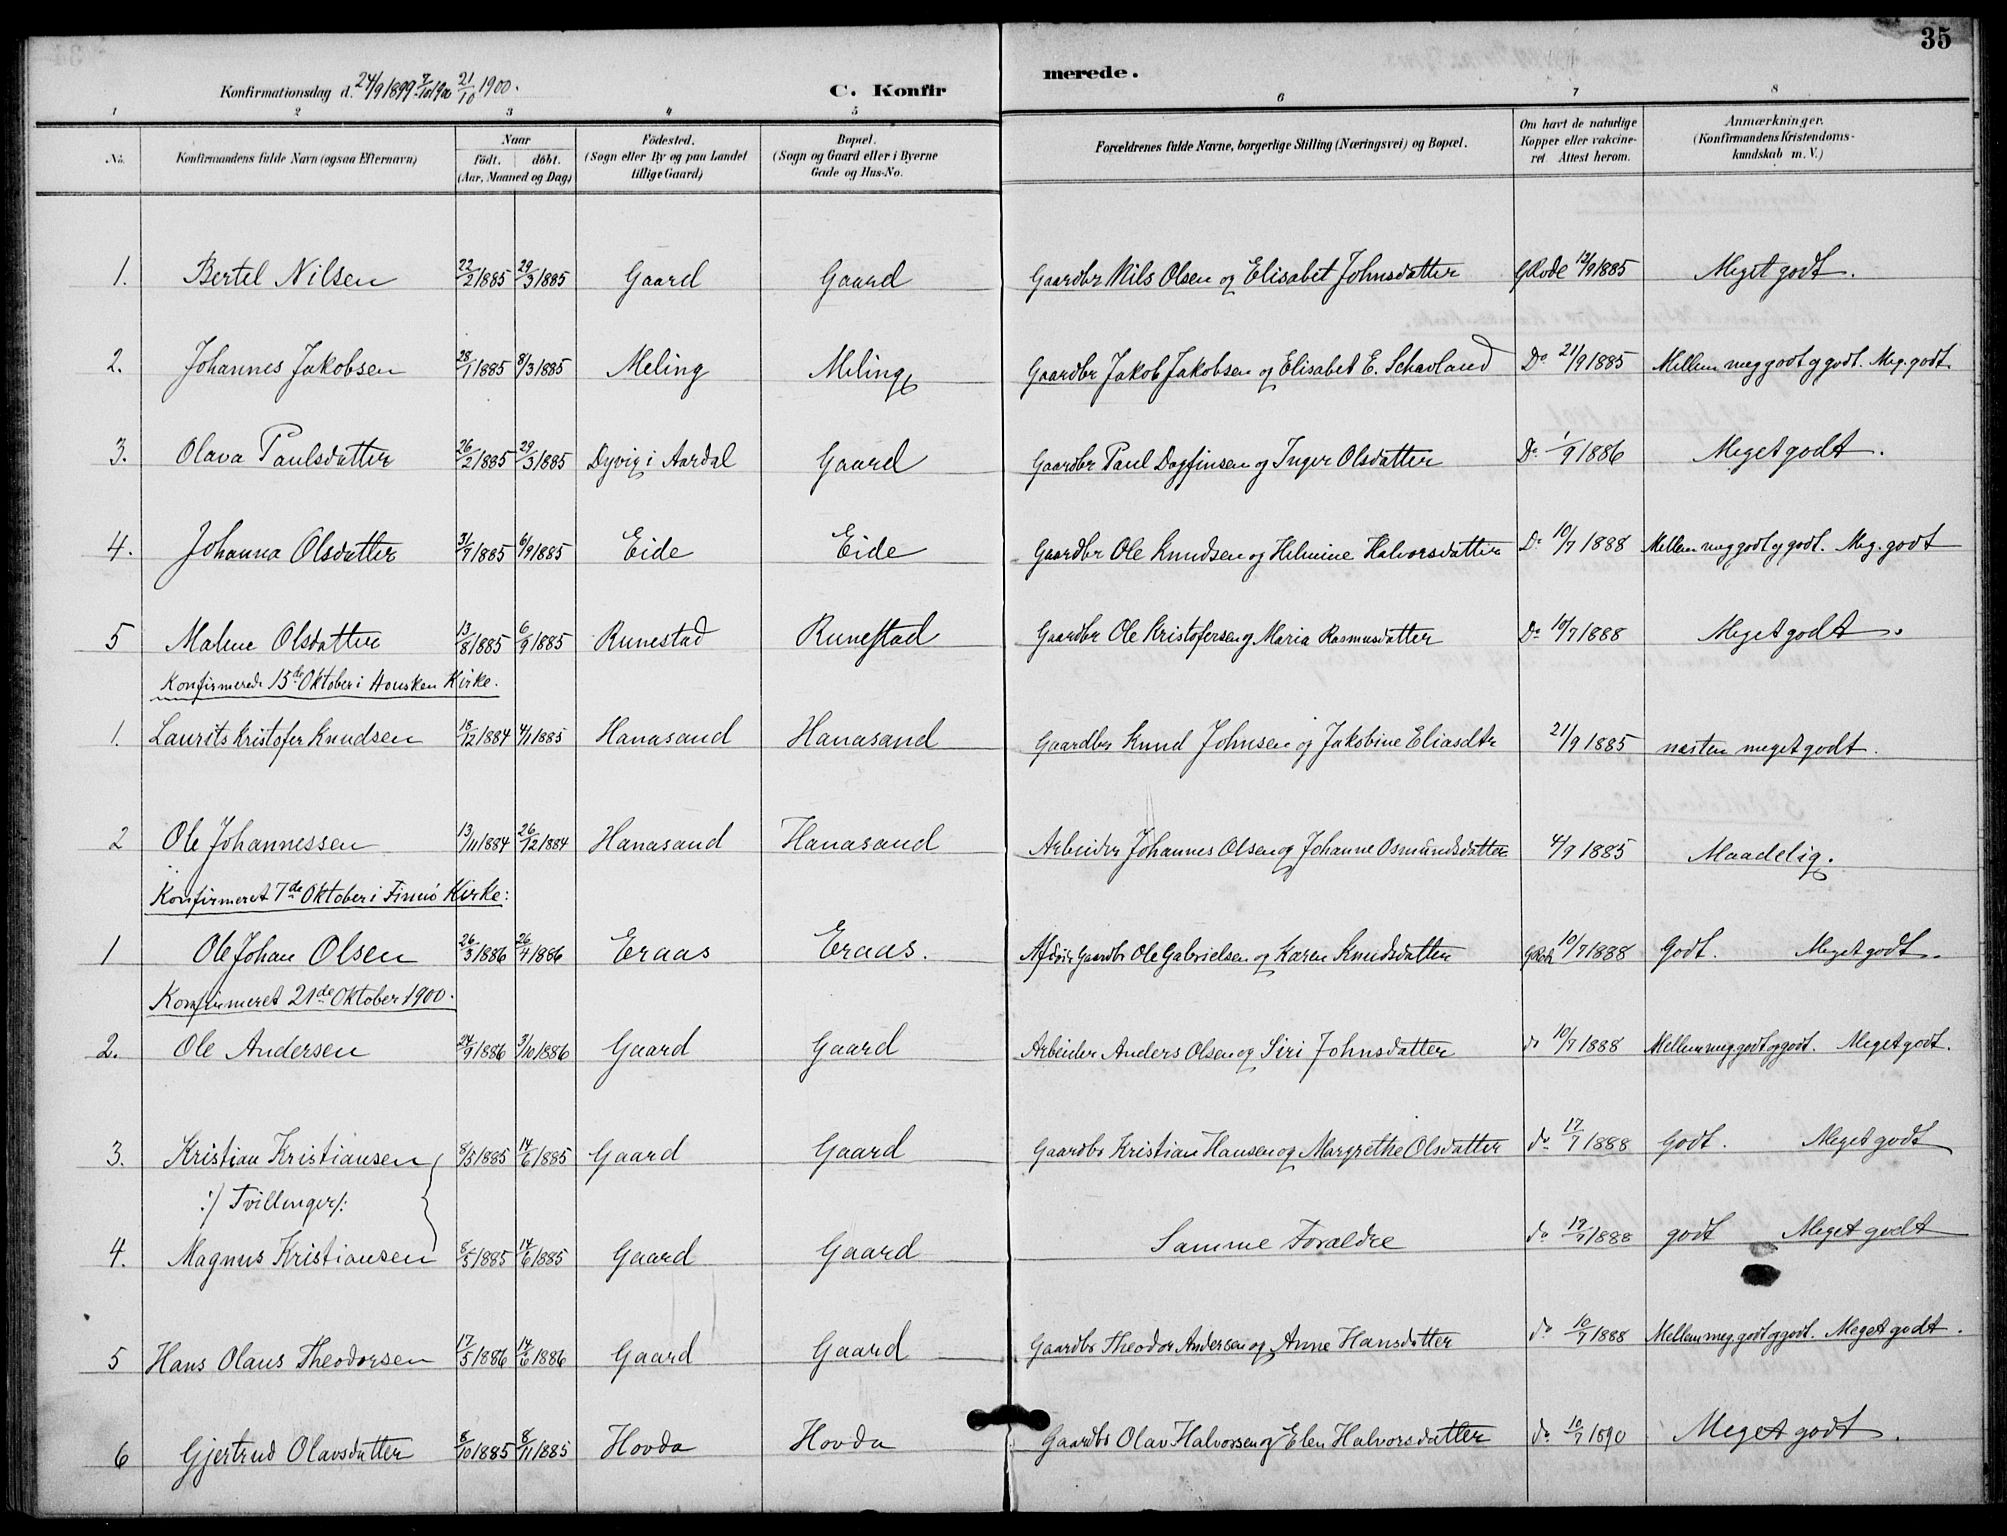 35
Konfirmationsdag d. 24/9 1899. 7/10 1900 21/10 1900.
C. Konfirmerede.
1 2 3 4 5 6 7 8
No. Konfirmandens fulde Navn (ogsaa Efternavn) Naar født. døbt. (Aar, Maaned og Dag) Fødested. (Sogn eller By og paa Landet tillige Gaard) Bopæl. (Sogn og Gaard eller i Byerne Gade og Hus-No. Forældrenes fulde Navne, borgerlige Stilling (Næringsvei) og Bopæl. Om havt de naturlige Kopper eller vakcineret. Attest herom. Anmærkninger. (Konfirmandens Kristendomskundskab m. V.)
1. Bertel Nilsen 22/2 1885 29/3 1885 Gaard Gaard Gaardbr Nils Olsen og Elisabet Johnsdatter GRode 12/9 1885 Meget godt.
2. Johannes Jakobsen 28/1 1885 8/3 1885 Meling Meling Gaardbr Jakob Jakobsen og Elisabet E. Schavland Do 21/9 1885 Mellem meg godt og godt. Meg. godt.
3. Olava Paulsdatter 26/2 1885 29/3 1885 Dyvig i Aardal Gaard Gaardbr Paul Dagfinsen og Inger Olsdatter Do 1/9 1886 Meget godt.
4. Johanna Olsdatter 31/7 1885 6/9 1885 Eide Eide Gaardbr Ole Knudsen og Helmine Halvorsdatter Do 10/7 1888 Mellem meg godt og godt. Meg. godt
5 Malene Olsdatter 13/8 1885 6/9 1885 Runestad Runestad Gaardbr Ole Kristofersen og Maria Rasmusdatter Do 10/7 1888 Meget godt.
Konfirmerede 15de Oktober i Hausken Kirke.
1. Laurits Kristofer Knudsen 18/12 1884 4/1 1885 Hanasand Hanasand Gaardbr Knud Johnsen og Jakobine Eliasdtr 21/9 1885 næsten meget godt.
2 Ole Johannessen 13/11 1884 26/12 1884 Hanasand Hanasand Arbeider Johannes Olsen og Johanne Osmundsdatter 4/9 1885 Maadelig.
Konfirmeret 7de Oktober i Finnø Kirke:
1 Ole Johan Olsen 26/3 1886 26/4 1886 Eraas Eraas. Afdøde Gaardbr Ole Gabrielsen og Karen Knudsdatter GRode 10/7 1888 Godt. Meget godt.
Konfirmeret 21de Oktober 1900.
2. Ole Andersen 24/9 1886 3/10 1886 Gaard Gaard Arbeider Anders Olsen og Siri Johnsdatter do 10/7 1888 Mellem meg godt og godt. Meget godt.
3. Kristian Kristiansen 8/5 1885 14/6 1885 Gaard Gaard Gaardbr Kristian Hansen og Margrethe Olsdatter do 17/7 1888 Godt. Meget godt
:/ Tvillinger /:
4. Magnus Kristiansen 8/5 1885 14/6 1885 Gaard Gaard Samme Forældre do 17/7 1888 godt Meget godt
5 Hans Olaus Theodorsen 17/5 1886 14/6 1886 Gaard Gaard Gaardbr Theodor Andersen og Anne Hansdatter do 10/7 1888 Mellem meg. godt og godt. Meget godt.
6 Gjertrud Olavsdatter 8/10 1885 8/11 1885 Hovda Hovda Gaardbr Olav Halvorsen og Elen Halvorsdatter do 10/7 1890 Meget godt.